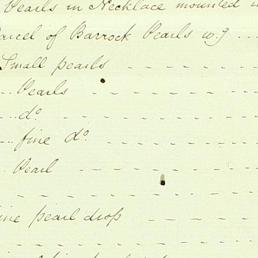 Pearls in Necklace mounted
arcel of Barrock Pearls wg ...
Small pearls
... Pearls
... do
... fine do
Pearl
ine pearl drop